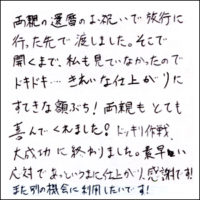 両親の還暦のお祝いで旅行に
行った先で渡しました。そこで
開くまで、私も見ていなかったので
ドキドキ…きれいな仕上がりに
すてきな額ぶち!両親もとても
喜んでくれました?ドッキリ作戦、
大成功に終わりました。最早い
対で、あっいうまに仕上がり、感謝です!
また別の機会に利用したいです!